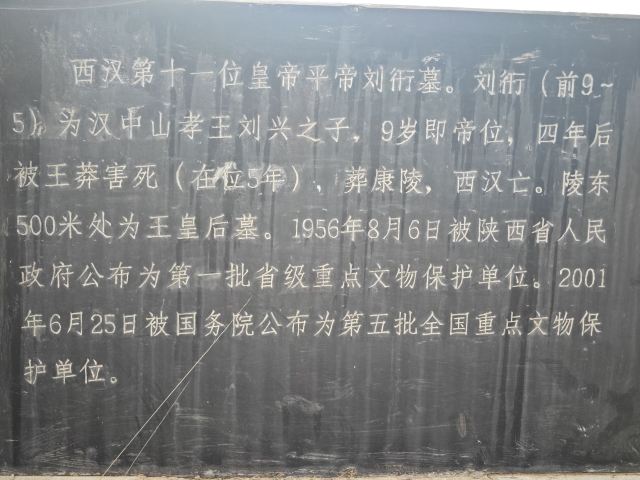 西汉第十一位皇帝平帝刘衎墓。刘衎（前9~
5）为汉中山孝王刘兴之子，9岁即帝位，四年后
被王莽害死（在位5年），葬康陵，西汉亡。陵东
500米处为王皇后墓。1956年8月6日被陕西省人民
政府公布为第一批省级重点文物保护单位。2001
年6月25日被国务院公布为第五批全国重点文物保
护单位。